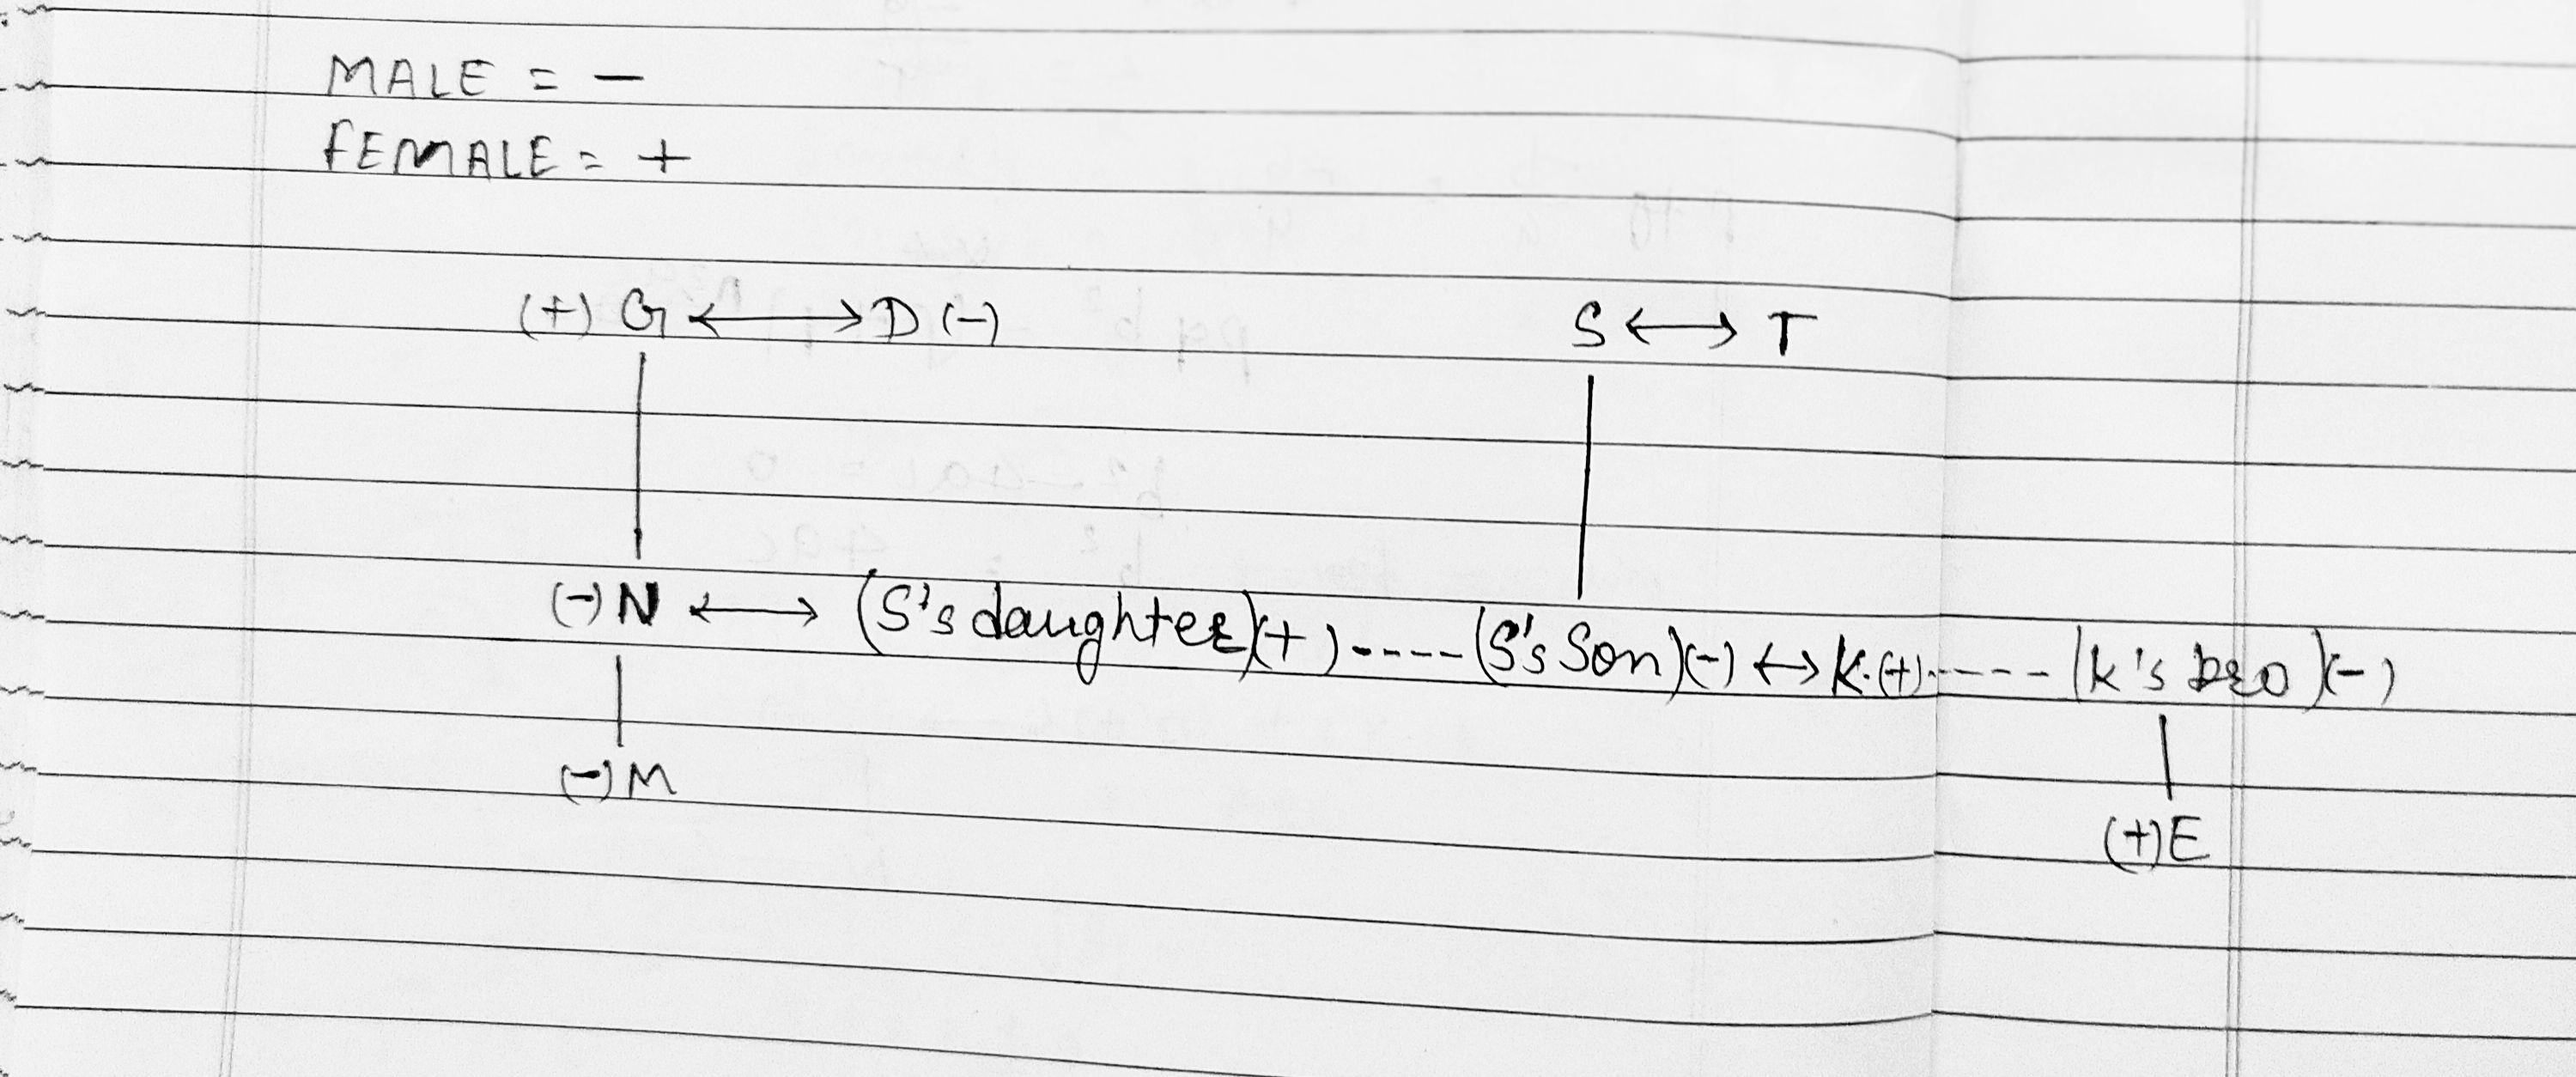 MALE = -
FEMALE = +
(+) G ⟷ D (-) S ⟷ T
(-) N ⟷ (S's daughter)(+) ---- (S's Son)(-) ⟷ K.(+) ---- (K's bro)(-)
(-) M
(+) E